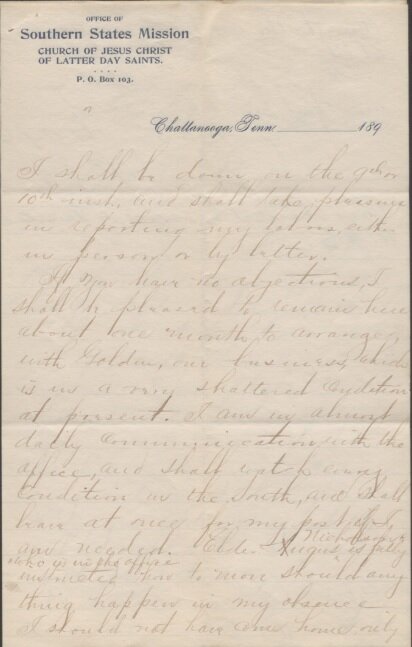 OFFICE OF
Southern States Mission
CHURCH OF JESUS CHRIST
OF LATTER DAY SAINTS.
P. O. Box 103.
Chattanooga, Tenn. 189
I shall be down on the 9th or
10th inst, and shall take pleasure
in reporting my labors, either
in person or by letter.
If you have no objections, I
shall be pleased to remain here
about one month to arrange,
with Golden, our business, which
is in a very shattered condition
at present. I am in almost
daily communication with the
office, and shall watch every
condition in the South, and shall
leave at once for my post if I
am needed. Elder Nicholson
is fully
who is in the office
instructed how to move should any
thing happen in my absence
I should not have come home only